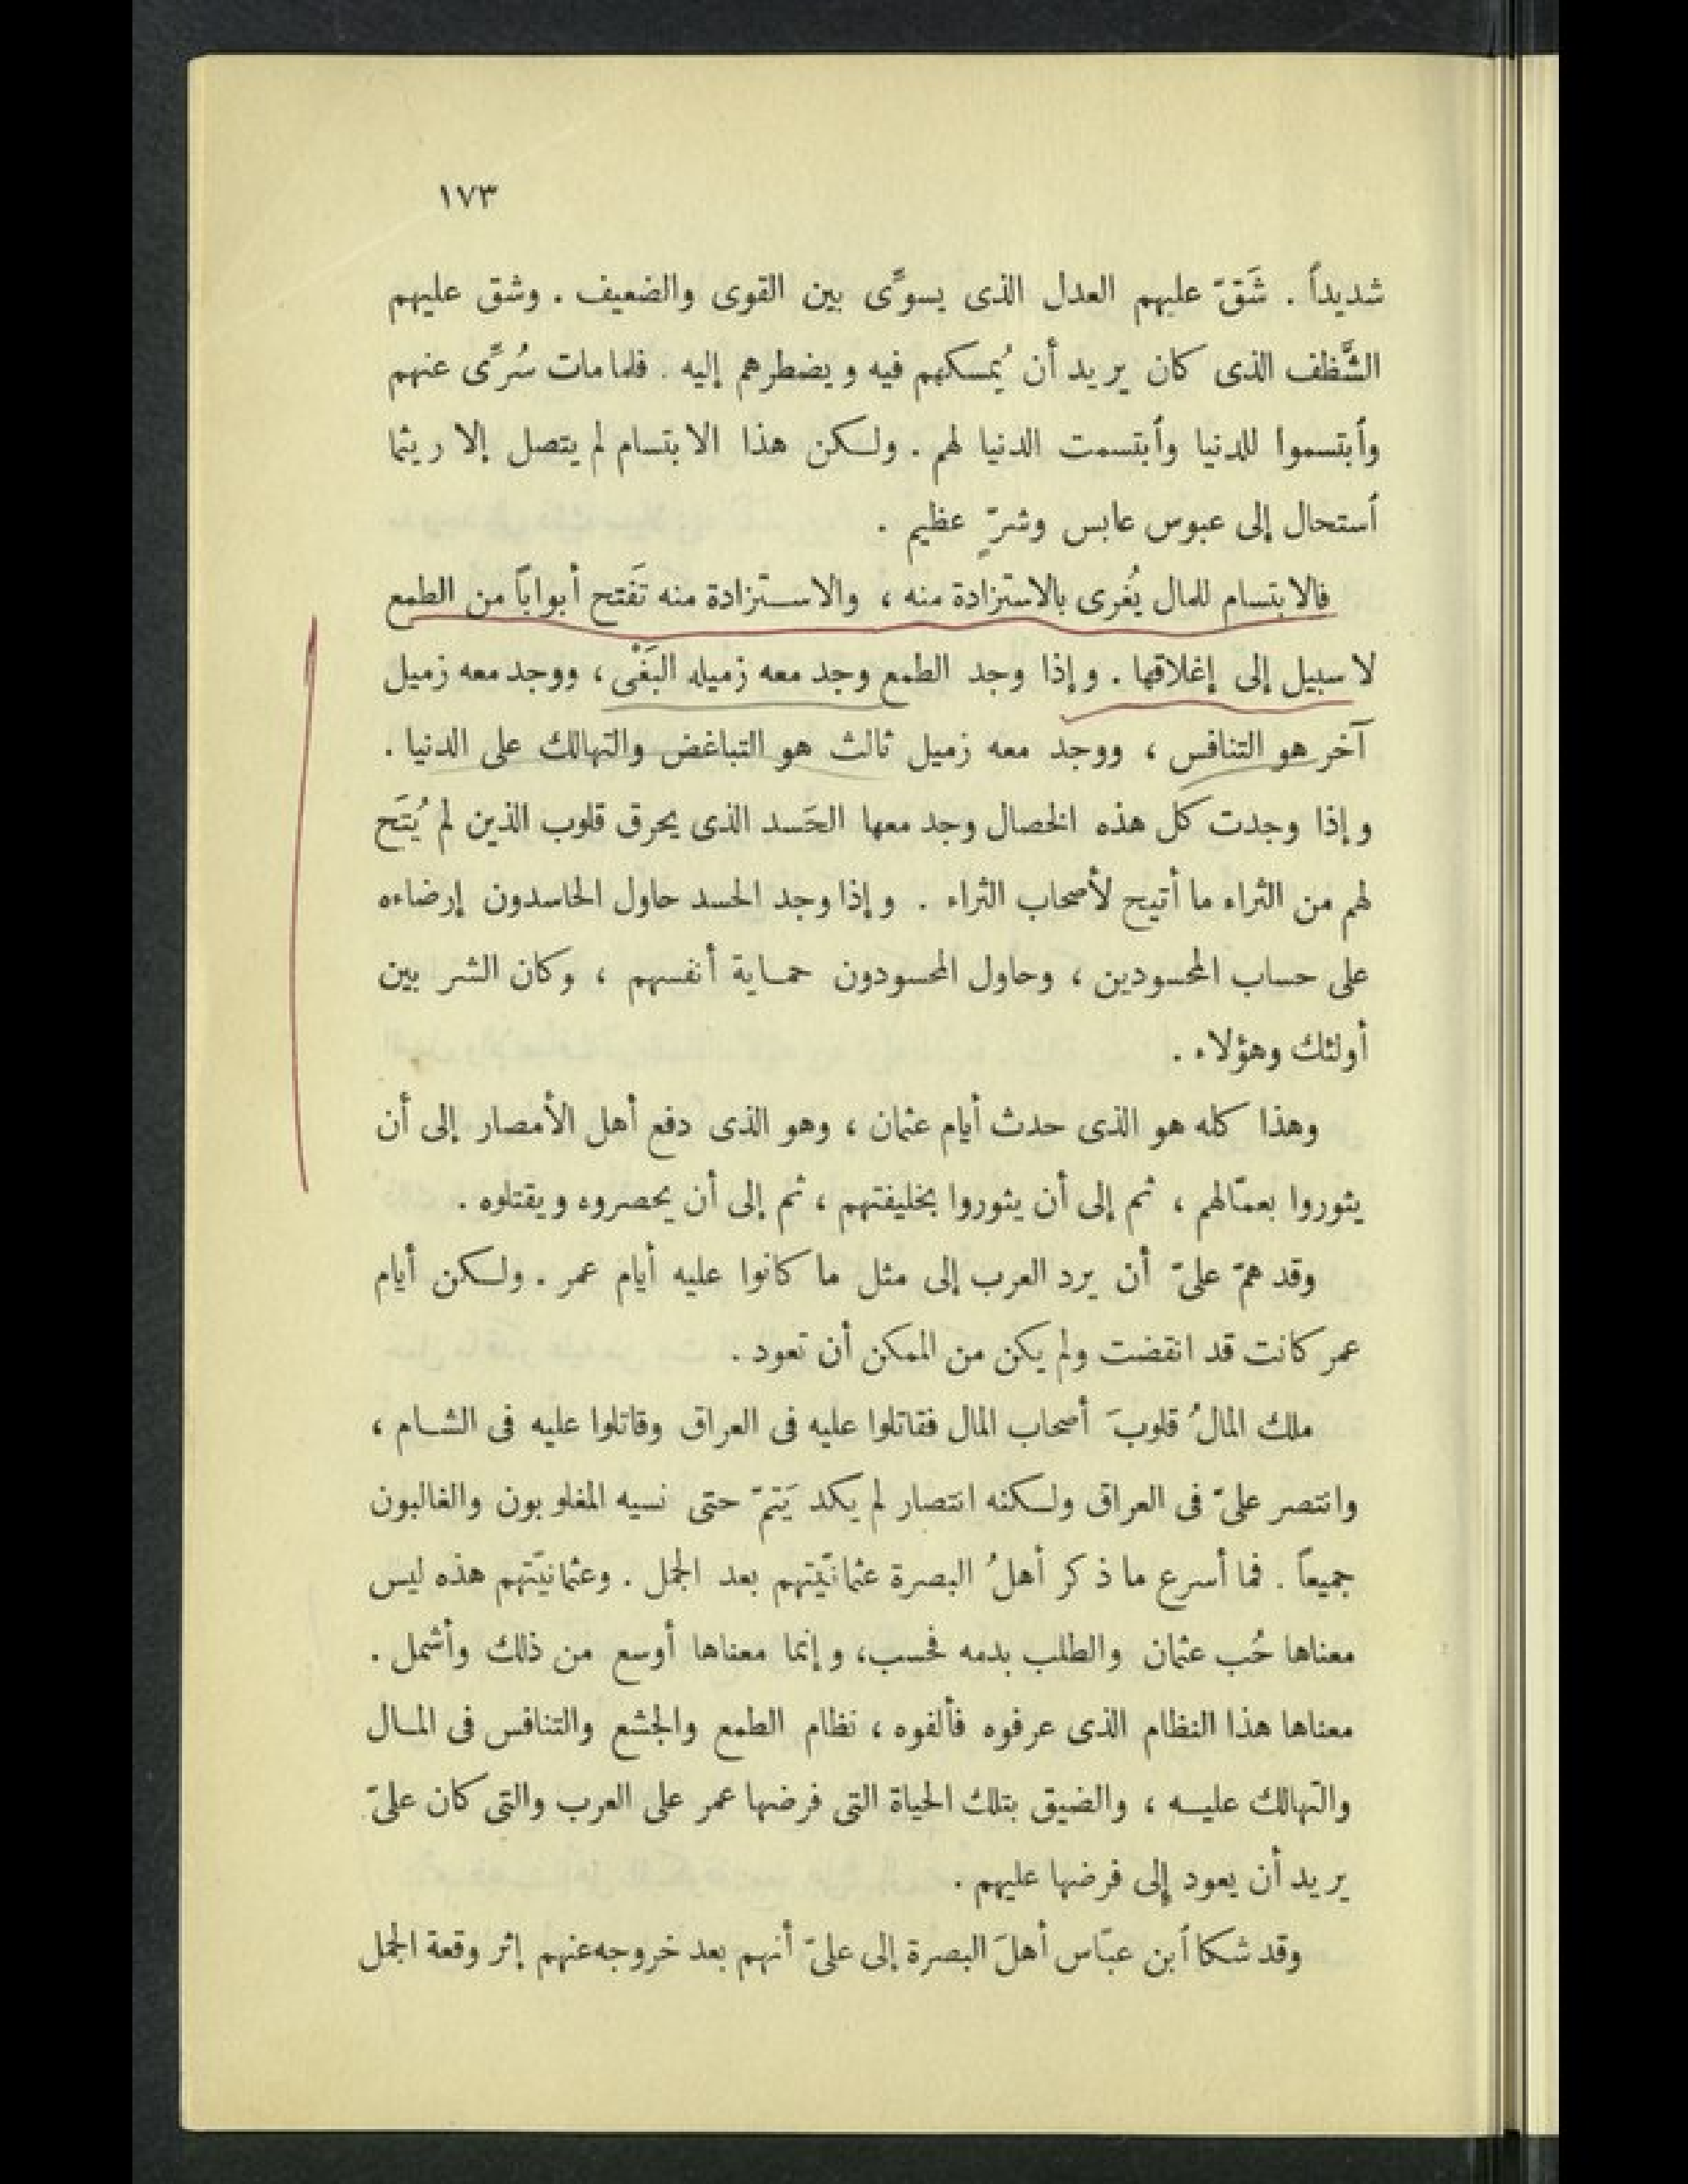 ١٧٣
شديداً . شَقَّ عليهم العدل الذى يسوِّى بين القوى والضعيف . وشق عليهم
الشَّظف الذى كان يريد أن يُمسكهم فيه ويضطرهم إليه . فلما مات سُرِّى عنهم
وٱبتسموا للدنيا وٱبتسمت الدنيا لهم . ولكن هذا الابتسام لم يتصل إلا ريثما
ٱستحال إلى عبوس عابس وشرٍّ عظيم .
فالابتسام للمال يُغرى بالاستزادة منه ، والاستزادة منه تَفتح أبواباً من الطمع
لا سبيل إلى إغلاقها . وإذا وجد الطمع وجد معه زميله البَغْى ، ووجد معه زميل
آخر هو التنافس ، ووجد معه زميل ثالث هو التباغض والتهالك على الدنيا .
وإذا وجدت كل هذه الخصال وجد معها الحَسد الذى يحرق قلوب الذين لم يُتَح
لهم من الثراء ما أتيح لأصحاب الثراء . وإذا وجد الحسد حاول الحاسدون إرضاءه
على حساب المحسودين ، وحاول المحسودون حماية أنفسهم ، وكان الشر بين
أولئك وهؤلاء .
وهذا كله هو الذى حدث أيام عثمان ، وهو الذى دفع أهل الأمصار إلى أن
يثوروا بعمّالهم ، ثم إلى أن يثوروا بخليفتهم ، ثم إلى أن يحصروه ويقتلوه .
وقد همّ علىّ أن يرد العرب إلى مثل ما كانوا عليه أيام عمر . ولكن أيام
عمر كانت قد انقضت ولم يكن من الممكن أن تعود .
ملك المالُ قلوبَ أصحاب المال فقاتلوا عليه فى العراق وقاتلوا عليه فى الشام ،
وانتصر علىّ فى العراق ولكنه انتصار لم يكد يَتمّ حتى نسيه المغلوبون والغالبون
جميعاً . فما أسرع ما ذكر أهلُ البصرة عثمانيّتهم بعد الجمل . وعثمانيّتهم هذه ليس
معناها حُب عثمان والطلب بدمه فحسب، وإنما معناها أوسع من ذلك وأشمل .
معناها هذا النظام الذى عرفوه فألفوه ، نظام الطمع والجشع والتنافس فى المال
والتهالك عليه ، والضيق بتلك الحياة التى فرضها عمر على العرب والتى كان علىّ
يريد أن يعود إلى فرضها عليهم .
وقد شكا ٱبن عبّاس أهلَ البصرة إلى علىّ أنهم بعد خروجه عنهم إثر وقعة الجمل